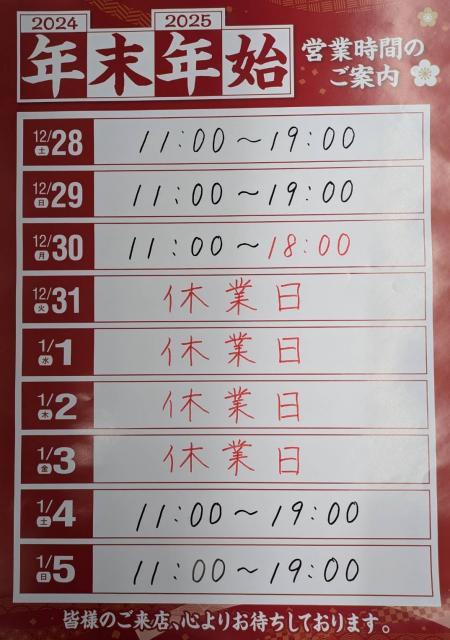 2024 2025
年末年始 営業時間の
ご案内
12/28 土 11:00〜19:00
12/29 日 11:00〜19:00
12/30 月 11:00〜18:00
12/31 火 休業日
1/1 水 休業日
1/2 木 休業日
1/3 金 休業日
1/4 土 11:00〜19:00
1/5 日 11:00〜19:00
皆様のご来店、心よりお待ちしております。